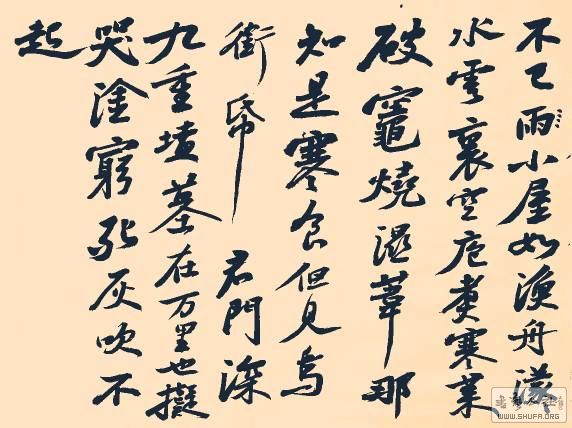 不已雨小屋如漁舟濛
水雲裏空庖煮寒菜
破竈燒濕葦那
知是寒食但見烏
銜帋 君門深
九重墳墓在万里也擬
哭塗窮死灰吹不
起
WWW.SHUFA.ORG